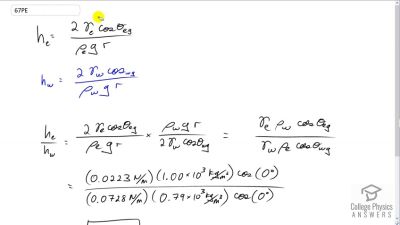 67PE
h_e = 2 γ_e cosθ_eg / ρ_e g r
h_w = 2 γ_w cos_wg / ρ_w g r
h_e / h_w = 2 γ_e cosθ_eg / ρ_e g r × ρ_w g r / 2 γ_w cosθ_wg = γ_e ρ_w cosθ_eg / γ_w ρ_e cosθ_wg
= (0.0223 N/m)(1.00×10³ kg/m³) cos(0°) / (0.0728 N/m)(0.79×10³ kg/m³) cos(0°)
College Physics
ANSWERS